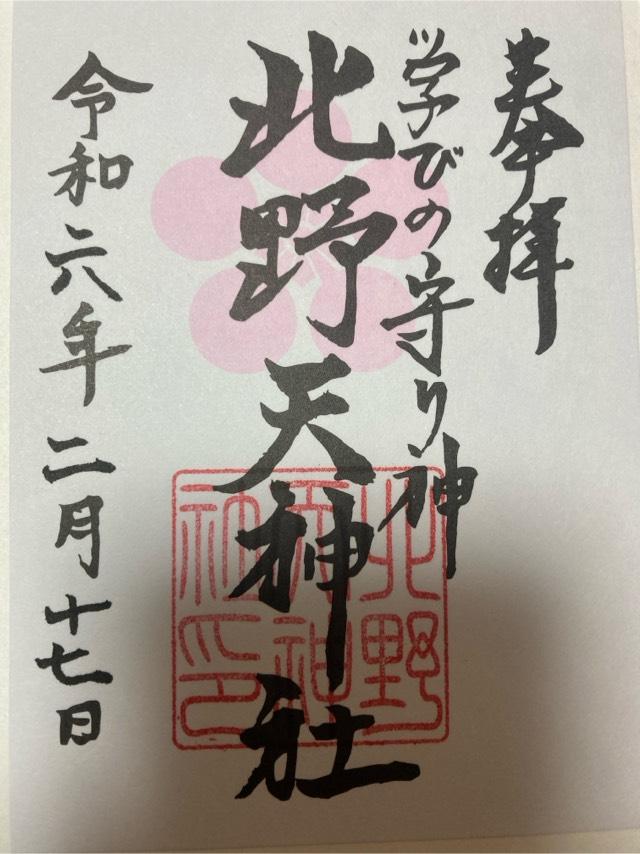 奉拝
学びの守り神
北野天神社
令和六年二月十七日
北野
天神
社印